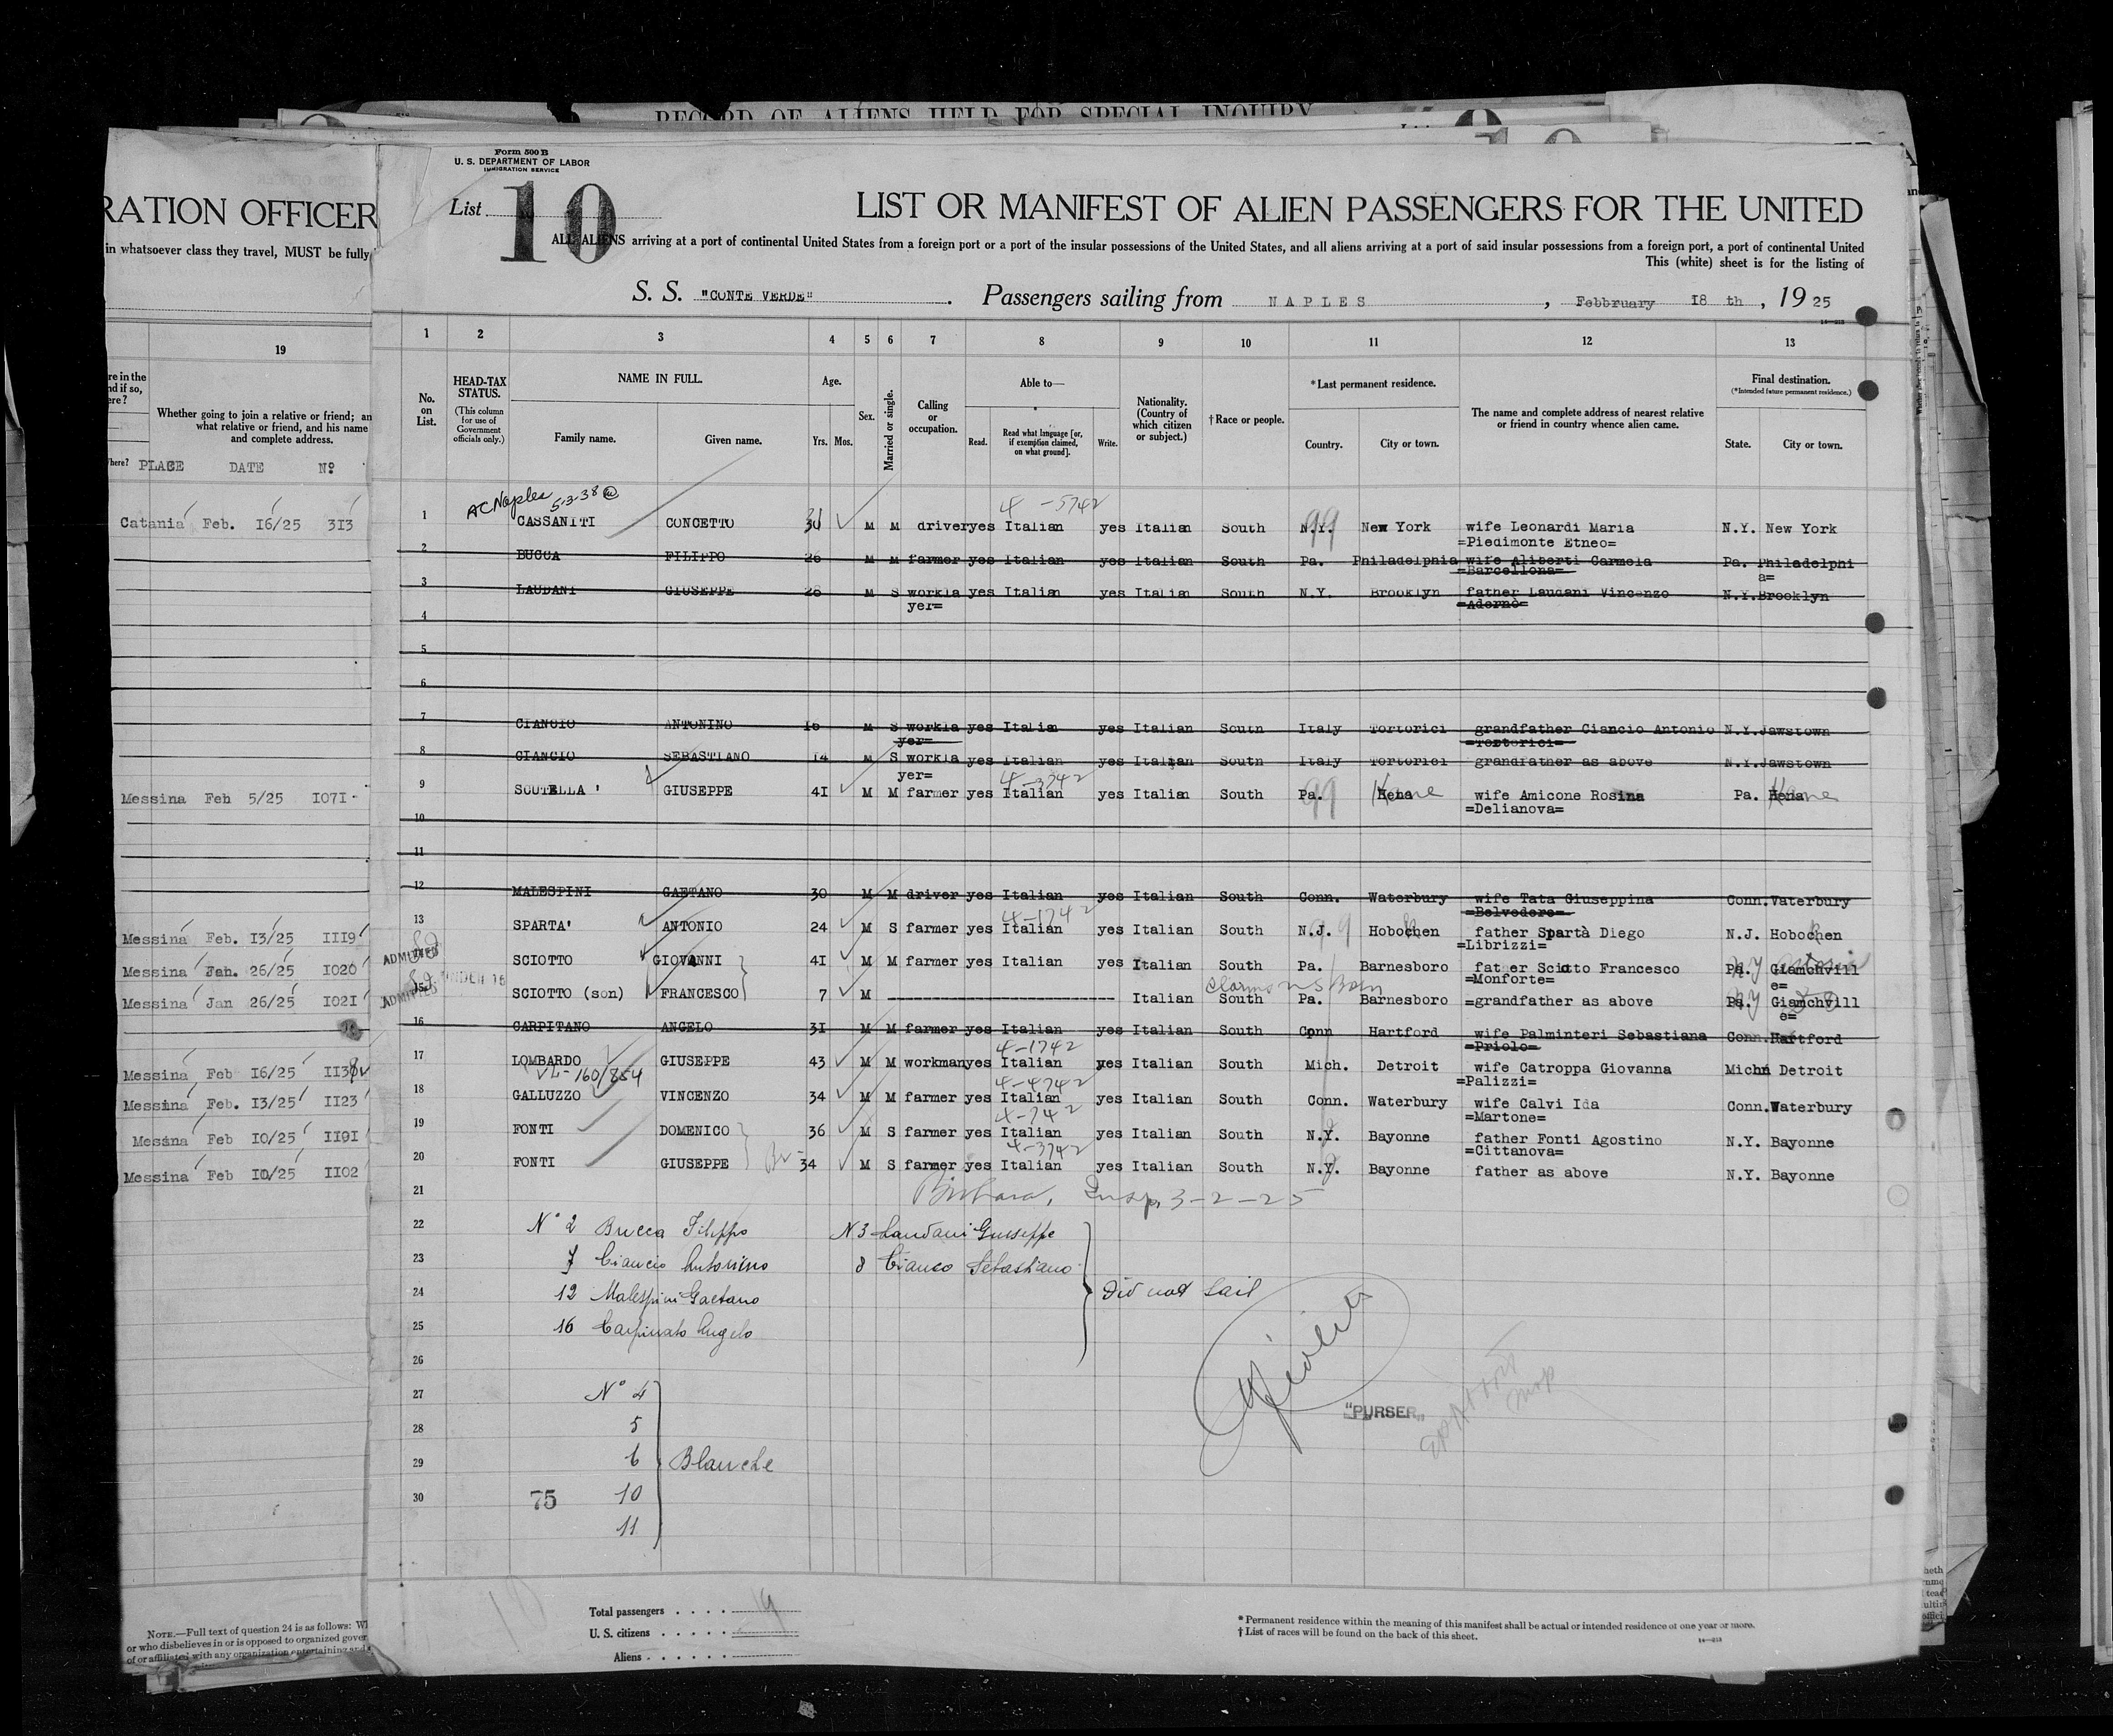 RECORD OF ALIENS HELD FOR SPECIAL INQUIRY
RATION OFFICER
in whatsoever class they travel, MUST be fully
19
re in the
nd if so,
ere?
Whether going to join a relative or friend; an
what relative or friend, and his name
and complete address.
here? PLACE DATE Nº
Catania Feb. I6/25 3I3
Messina Feb 5/25 I07I
Messina Feb. I3/25 III9
Messina Jan. 26/25 I020
Messina Jan 26/25 I02I
Messina Feb I6/25 II3
Messina Feb. I3/25 II23
Messina Feb I0/25 II9I
Messina Feb I0/25 II02
NOTE.—Full text of question 24 is as follows: Wh
or who disbelieves in or is opposed to organized gover
of or affiliated with any organization entertaining and
Form 500 B
U. S. DEPARTMENT OF LABOR
IMMIGRATION SERVICE
List 10
LIST OR MANIFEST OF ALIEN PASSENGERS FOR THE UNITED
ALL ALIENS arriving at a port of continental United States from a foreign port or a port of the insular possessions of the United States, and all aliens arriving at a port of said insular possessions from a foreign port, a port of continental United
This (white) sheet is for the listing of
S. S. "CONTE VERDE" . Passengers sailing from NAPLES , Febbruary I8 th , 19 25
1 2 3 4 5 6 7 8 9 10 11 12 13
No. on List.
HEAD-TAX STATUS.
(This column for use of Government officials only.)
NAME IN FULL.
Family name. Given name.
Age.
Yrs. Mos.
Sex.
Married or single.
Calling or occupation.
Able to—
Read. Read what language [or, if exemption claimed, on what ground]. Write.
Nationality. (Country of which citizen or subject.)
†Race or people.
*Last permanent residence.
Country. City or town.
The name and complete address of nearest relative or friend in country whence alien came.
Final destination.
(*Intended future permanent residence.)
State. City or town.
AC Naples 5-3-38
4 -5742
1 CASSANITI CONCETTO 30 M M driver yes Italian yes Italian South N.Y. New York wife Leonardi Maria N.Y. New York
=Piedimonte Etneo=
2 BUCCA FILIPPO 26 M M farmer yes Italian yes Italian South Pa. Philadelphia wife Aliberti Carmela Pa. Philadelphi
=Barcellona= a=
3 LAUDANI GIUSEPPE 28 M S workla yes Italian yes Italian South N.Y. Brooklyn father Laudani Vincenzo N.Y. Brooklyn
yer= =Adernò=
4
5
6
7 CIANCIO ANTONINO I6 M S workla yes Italian yes Italian South Italy Tortorici grandfather Ciancio Antonio N.Y. Jawstown
yer= =Tortorici=
8 CIANCIO SEBASTIANO I4 M S workla yes Italian yes Italian South Italy Tortorici grandfather as above N.Y. Jawstown
yer= 4-3742
9 SCUTELLA' GIUSEPPE 4I M M farmer yes Italian yes Italian South Pa. Kena Kane wife Amicone Rosina Pa. Kena Kane
99 =Delianova=
10
11
12 MALESPINI GAETANO 30 M M driver yes Italian yes Italian South Conn. Waterbury wife Tata Giuseppina Conn. Vaterbury
4-1742 =Belvedere=
13 SPARTA' ANTONIO 24 M S farmer yes Italian yes Italian South N.J. Hobochen father Spartà Diego N.J. Hobochen
=Librizzi=
ADMITTED
SCIOTTO GIOVANNI 4I M M farmer yes Italian yes Italian South Pa. Barnesboro father Sciotto Francesco Pa. Giamchvill
=Monforte= e=
ADMITTED UNDER 16
15 SCIOTTO (son) FRANCESCO 7 M Italian South Pa. Barnesboro =grandfather as above Pa. Giamchvill
e=
16 CARPITANO ANGELO 3I M M farmer yes Italian yes Italian South Conn Hartford wife Palminteri Sebastiana Conn. Hartford
4-1742 =Priolo=
17 LOMBARDO GIUSEPPE 43 M M workman yes Italian yes Italian South Mich. Detroit wife Catroppa Giovanna Mich Detroit
VL-160/854 4-4742 =Palizzi=
18 GALLUZZO VINCENZO 34 M M farmer yes Italian yes Italian South Conn. Waterbury wife Calvi Ida Conn. Waterbury
4-742 =Martone=
19 FONTI DOMENICO 36 M S farmer yes Italian yes Italian South N.Y. Bayonne father Fonti Agostino N.Y. Bayonne
4-3742 =Cittanova=
20 FONTI GIUSEPPE 34 M S farmer yes Italian yes Italian South N.Y. Bayonne father as above N.Y. Bayonne
21 Insp. 3-2-25
22 N° 2 Bucca Filippo N 3 Laudani Giuseppe
23 7 Ciancio Antonino 8 Cianco Sebastiano
24 12 Malespini Gaetano Did not Sail
25 16 Carpinato Angelo
26
27 N° 4
28 5
29 6 Blanche
30 75 10
11
"PURSER"
Total passengers . . . . 14
U. S. citizens . . . . .
Aliens . . . . . .
* Permanent residence within the meaning of this manifest shall be actual or intended residence of one year or more.
† List of races will be found on the back of this sheet.